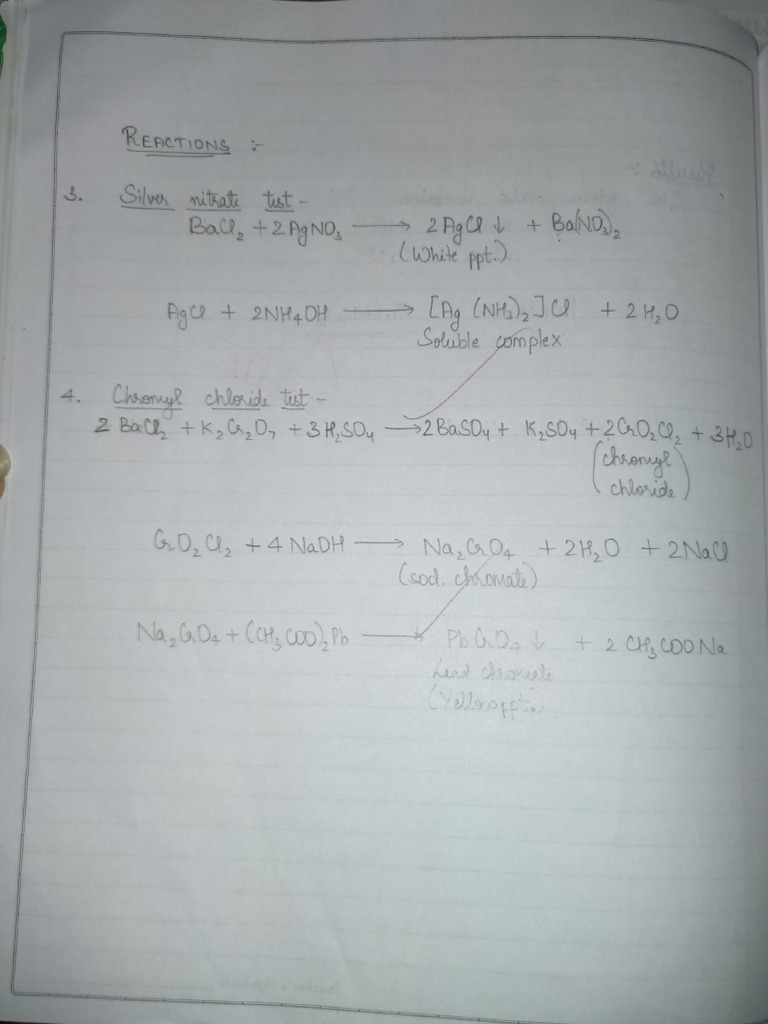 REACTIONS :-
3. Silver nitrate test -
BaCl₂ + 2AgNO₃ ⟶ 2AgCl ↓ + Ba(NO₃)₂
(White ppt.)
AgCl + 2NH₄OH ⟶ [Ag (NH₃)₂]Cl + 2H₂O
Soluble complex
4. Chromyl chloride test -
2BaCl₂ + K₂Cr₂O₇ + 3H₂SO₄ ⟶ 2BaSO₄ + K₂SO₄ + 2CrO₂Cl₂ + 3H₂O
(chromyl
chloride)
CrO₂Cl₂ + 4NaOH ⟶ Na₂CrO₄ + 2H₂O + 2NaCl
(sod. chromate)
Na₂CrO₄ + (CH₃COO)₂Pb ⟶ PbCrO₄ ↓ + 2CH₃COONa
Lead chromate
(Yellow ppt.)